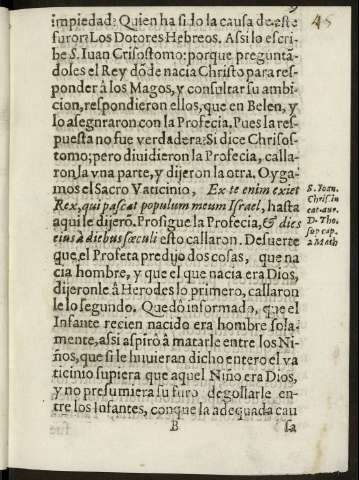 45
impiedad: Quien ha sido la causa de este
furor: Los Dotores Hebreos. Assi lo escri-
be S. Iuan Crisostomo: porque preguntã-
doles el Rey dõde nacia Christo para res-
ponder à los Magos, y consultar su ambi-
cion, respondieron ellos, que en Belen, y
lo asegnraron con la Profecia. Pues la res-
puesta no fue verdadera? Si dice Chrisos-
tomo; pero diuidieron la Profecia, calla-
ron la vna parte, y dijeron la otra. Oyga-
mos el Sacro Vaticinio, Ex te enim exiet
Rex, qui pascat populum meum Israel, hasta
aqui le dijerõ. Prosigue la Profecia, & dies
eius à diebus sæculi esto callaron. De suerte
que, el Profeta predijo dos cosas, que na
cia hombre, y que el que nacia era Dios,
dijeronle à Herodes lo primero, callaron
le lo segundo. Quedô informado, que el
Infante recien nacido era hombre sola-
mente, assi aspirò à matarle entre los Ni-
ños, que si le huuieran dicho entero el va
ticinio supiera que aquel Niño era Dios,
y no presumiera su furo degollarle en-
tre los Infantes, conque la adequada cau
B
sa
S. Ioan.
Chris. in
cat. aur.
D. Tho.
sup cap.
2 Math